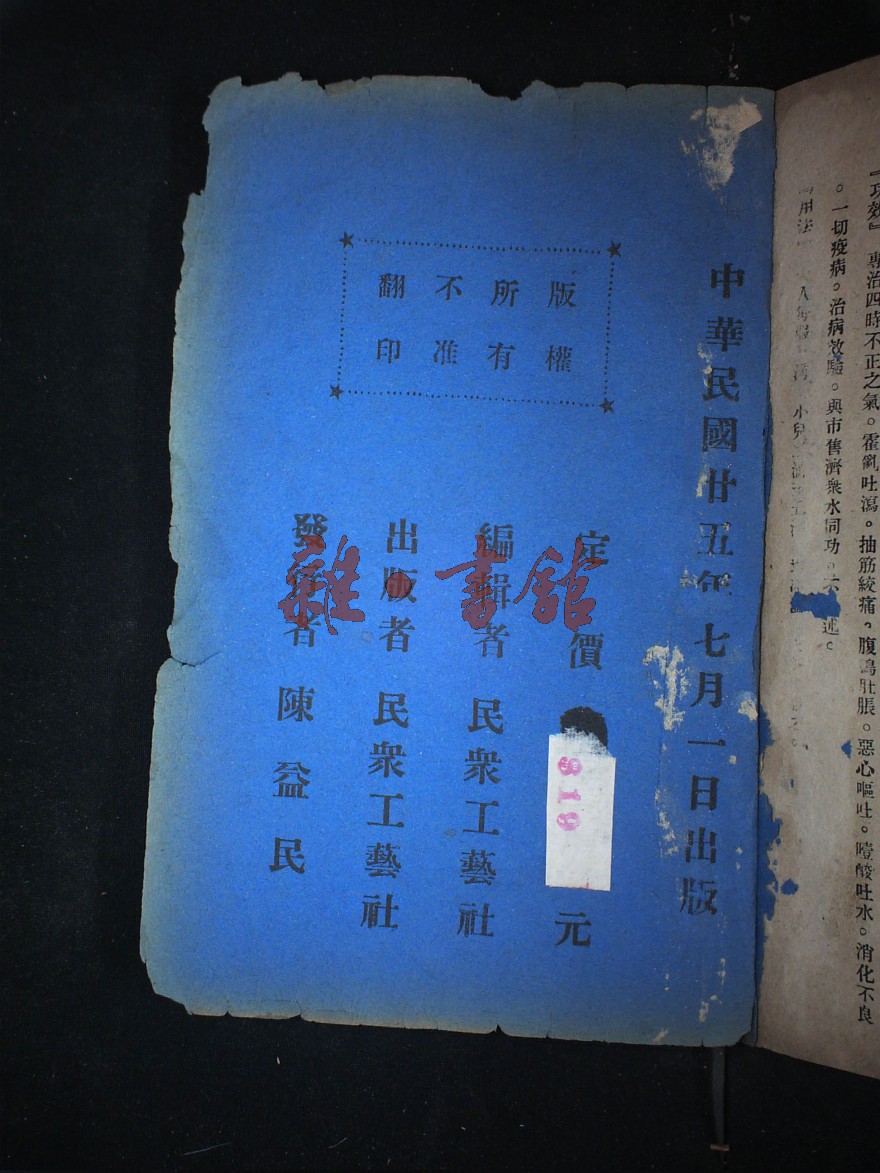 『功效』 專治四時不正之氣。霍亂吐瀉。抽筋絞痛。腹鳴肚脹。惡心嘔吐。噎酸吐水。消化不良
。一切疫病。治病效驗。與市售濟衆水同功。不 述。
用法 小兒
中華民國廿五年七月一日出版
版權
所有
不准
翻印
定價 元
319
編輯者 民衆工藝社
出版者 民衆工藝社
發行者 陳益民
雜·書館